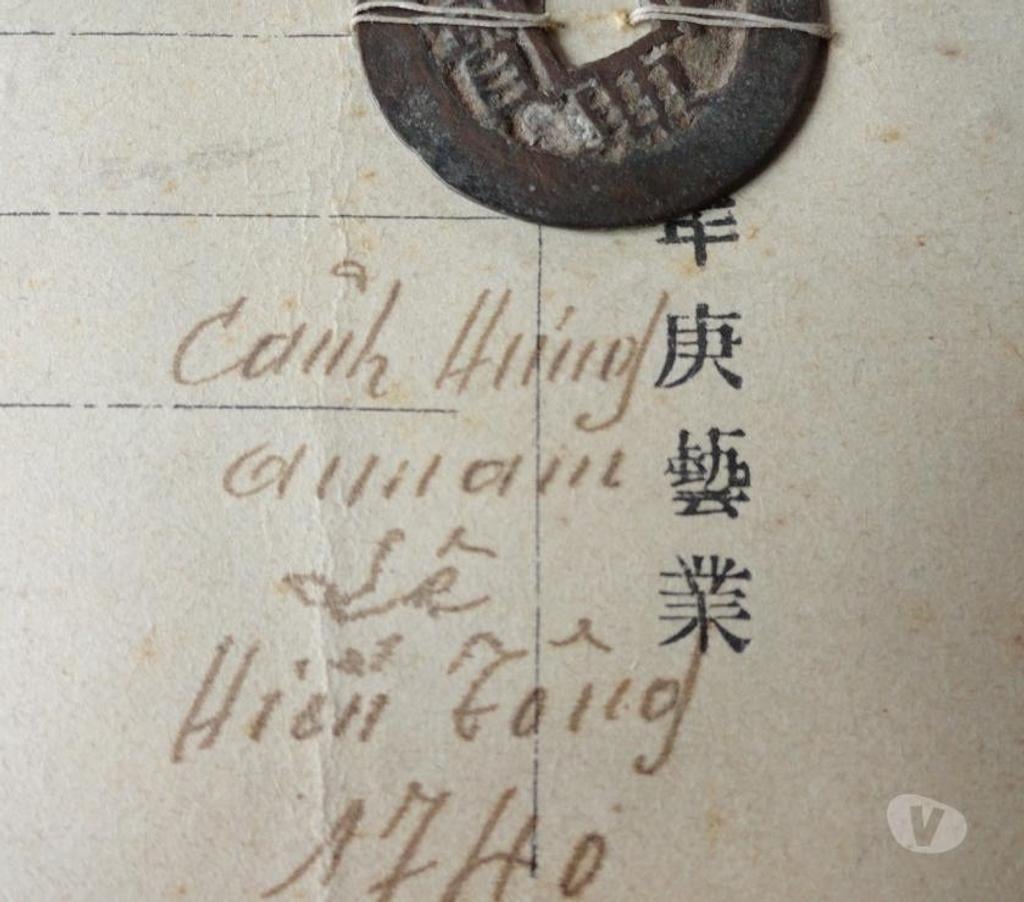 Cảnh Hưng
annam
Lê
Hiển Tông
1740
年庚藝業
V